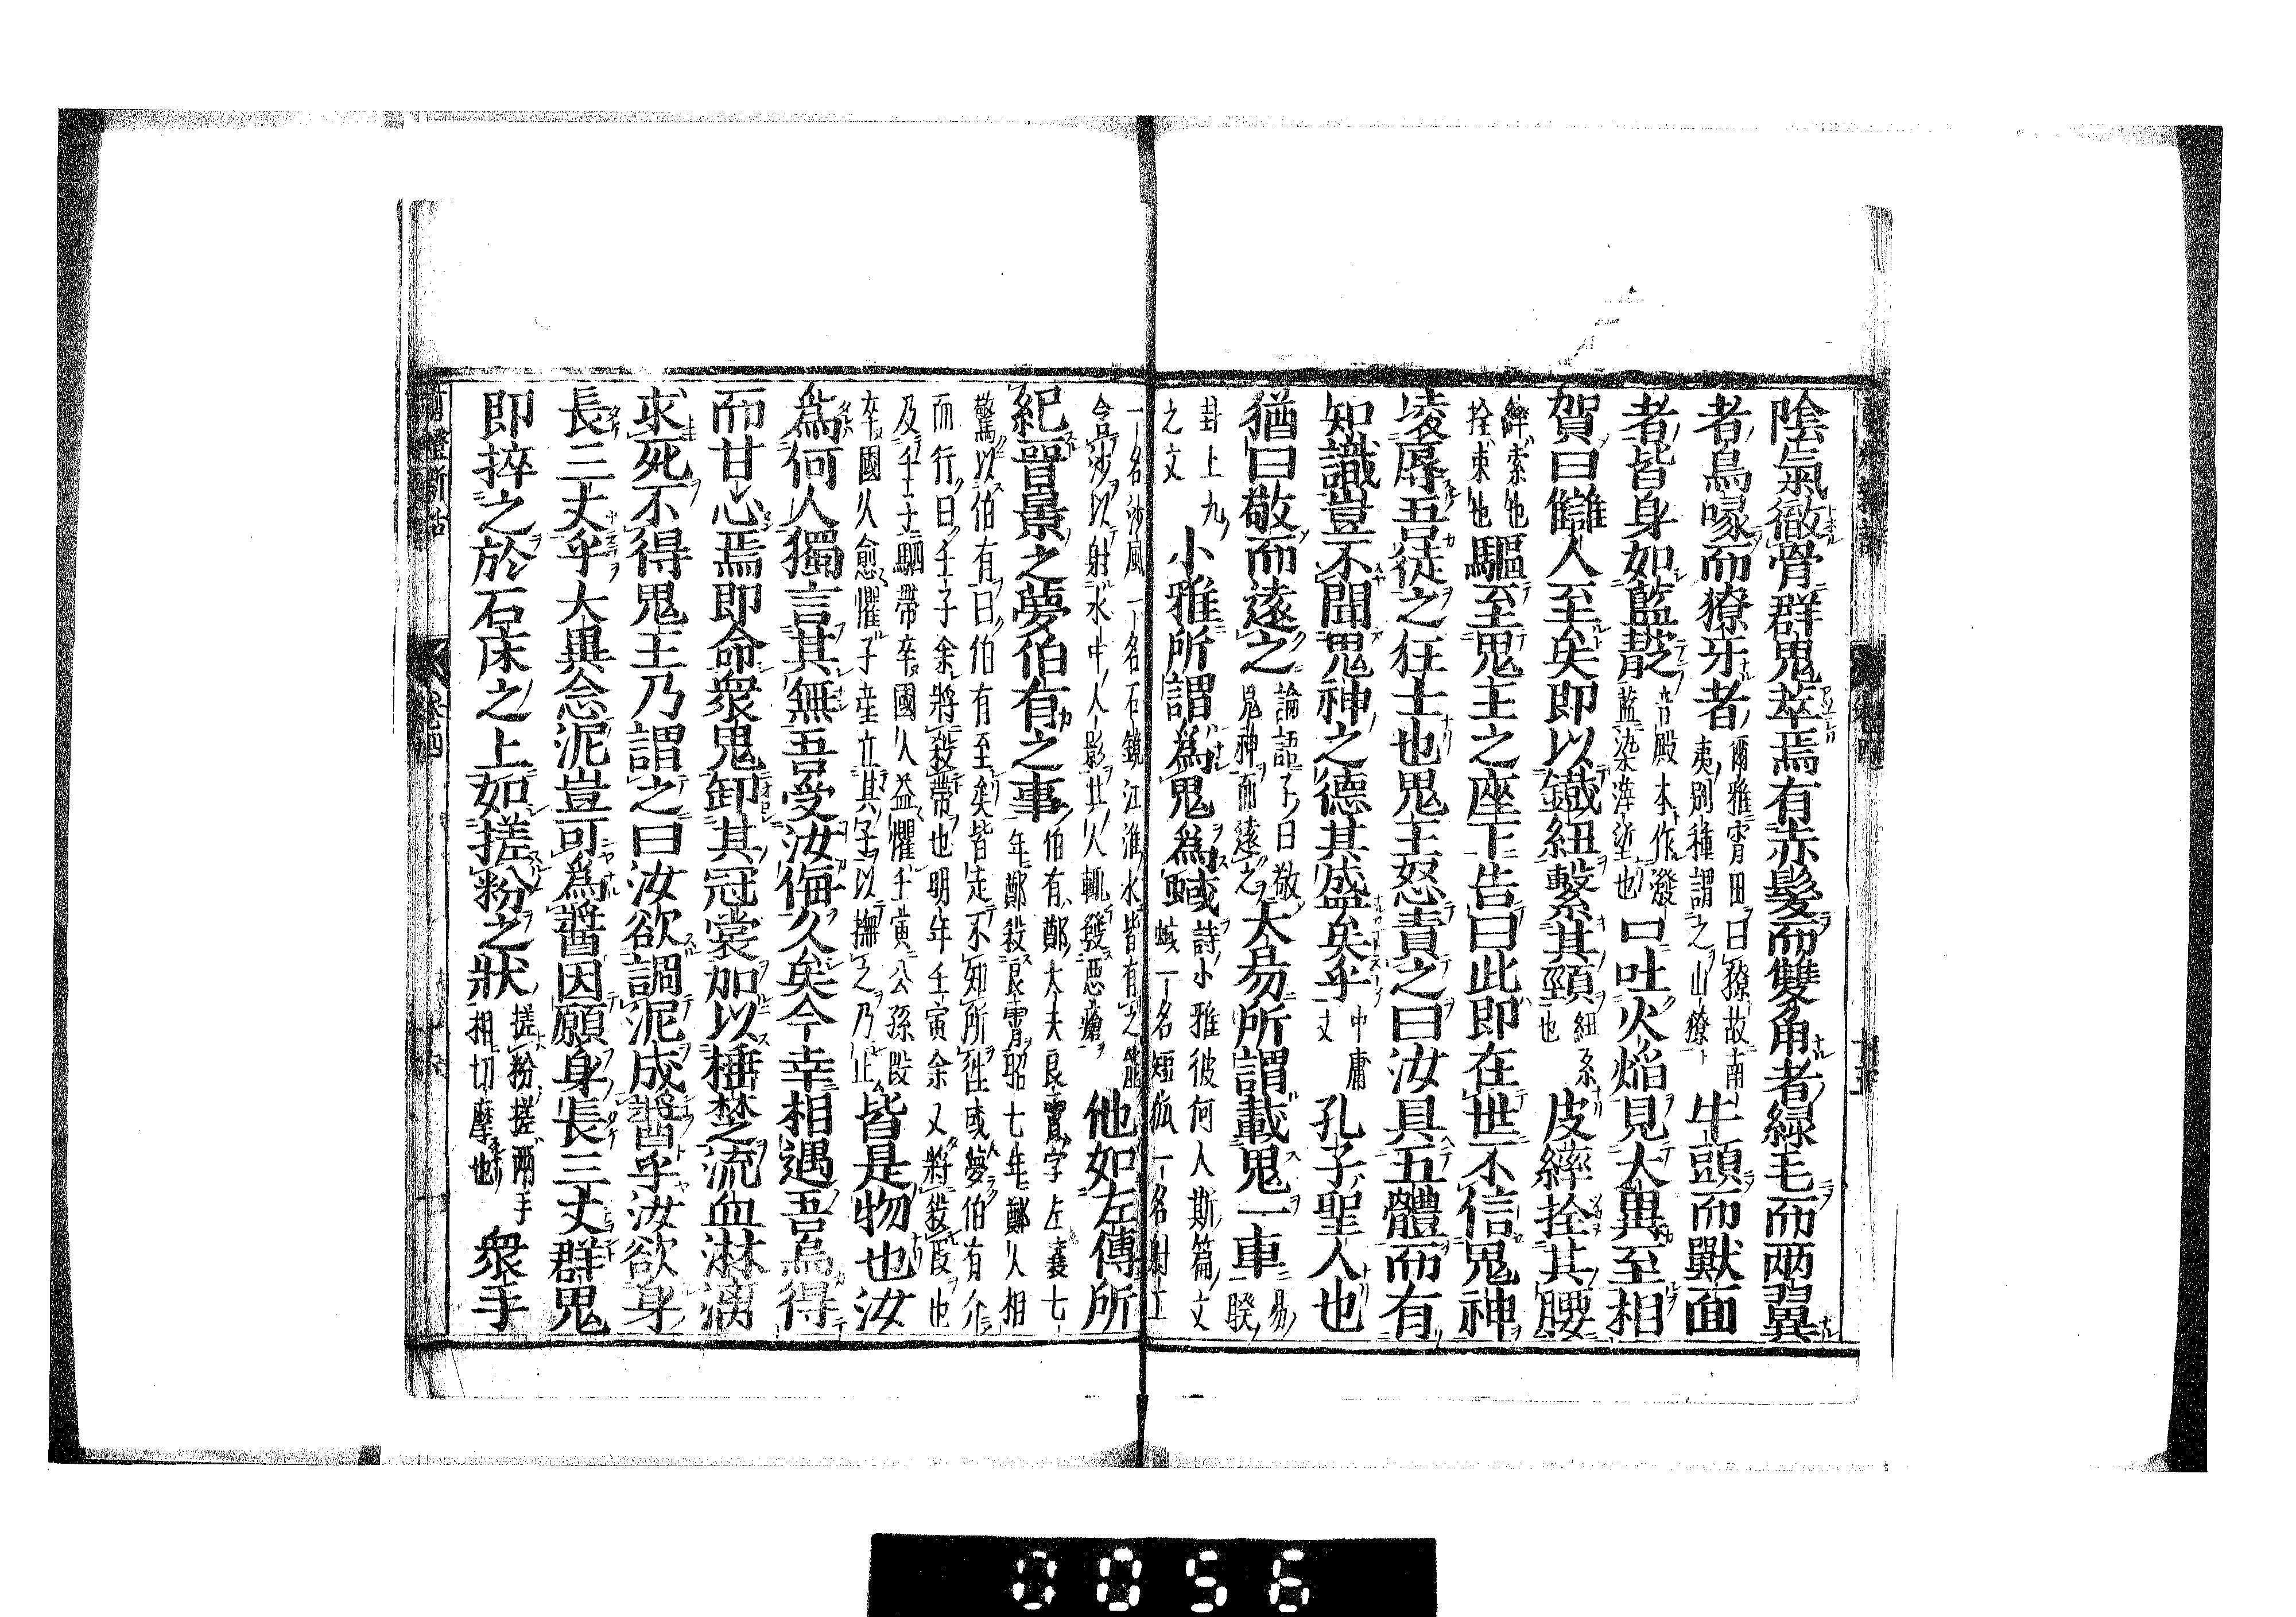 陰氣徹骨群鬼萃焉有赤髮而雙角者緑毛而兩翼
者鳥喙而獠牙者 爾雅宵田曰獠故南夷別種謂之山獠 牛頭而獸面
者皆身如藍靛 音殿本作澱藍染滓埿也 口吐火焰見大異至相
賀曰讎人至矣即以鐵紐繫其頸 紐系也 皮繂拴其腰
繂索也拴束也 驅至鬼主之座下告曰此即在世不信鬼神
凌辱吾徒之狂士也鬼主怒責之曰汝具五體而有
知識豈不聞鬼神之德其盛矣乎 中庸文 孔子聖人也
猶曰敬而遠之 論語子曰敬鬼神而遠之 大易所謂載鬼一車 易睽
卦上九之文 小雅所謂為鬼為蜮 詩小雅彼何人斯篇文蜮一名短狐一名射工
一名沙風一名石鏡江淮水皆有之能含沙以射水中人影其人輒發惡瘡 他如左傳所
紀晉景之夢伯有之事 伯有鄭大夫良霄字左襄七年鄭殺良霄昭七年鄭人相
驚以伯有曰伯有至矣皆走不知所往或夢伯有介而行曰壬子余將殺帶也明年壬寅余又將殺段也
及壬子駟帶卒國人益懼壬寅公孫段卒國人愈懼子産立其子以撫之乃止 皆是物也汝
為何人獨言其無吾受汝侮久矣今幸相遇吾烏得
而甘心焉即命衆鬼卸其冠裳加以捶楚流血淋漓
求死不得鬼王乃謂之曰汝欲調泥成醬乎汝欲身
長三丈乎大異念泥豈可為醬因願身長三丈群鬼
即捽之於石床之上如搓粉之狀 搓粉搓兩手相切摩也 衆手
剪燈新話
卷四
0056